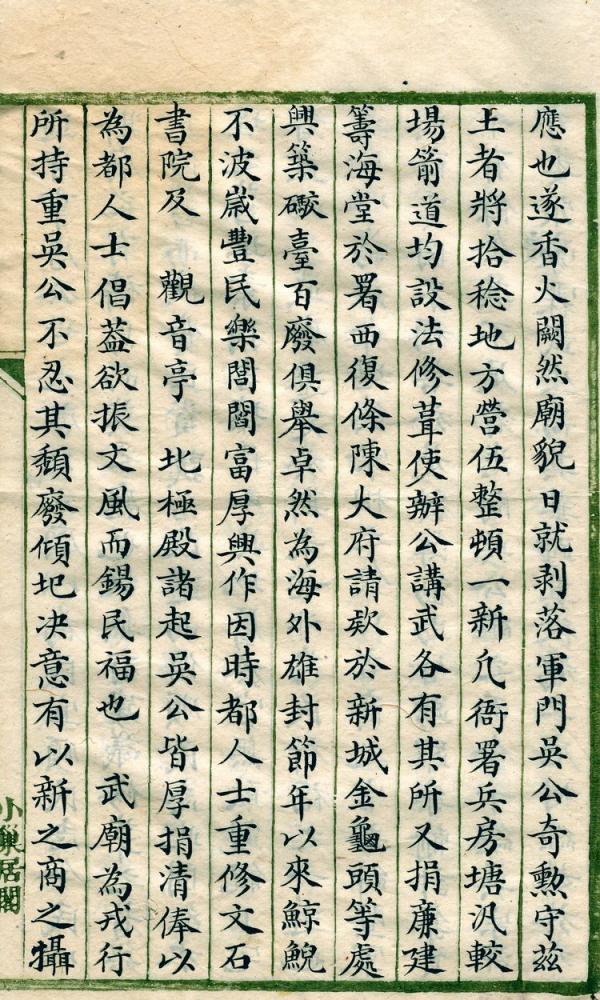 應也遂香火闕然廟貌日就剥落軍門吳公奇勳守茲
土者將拾稔地方營伍整頓一新凡衙署兵房塘汛較
場箭道均設法修葺使辦公講武各有其所又捐廉建
籌海堂於署西復條陳大府請欵於新城金龜頭等處
興築礮臺百廢俱舉卓然為海外雄封節年以來鯨鯢
不波歲豐民樂閭閻富厚興作因時都人士重修文石
書院及 觀音亭 北極殿諸起吳公皆厚捐清俸以
為都人士倡葢欲振文風而錫民福也 武廟為戎行
所持重吳公不忍其頽廢傾圮决意有以新之商之攝
小巢居閣